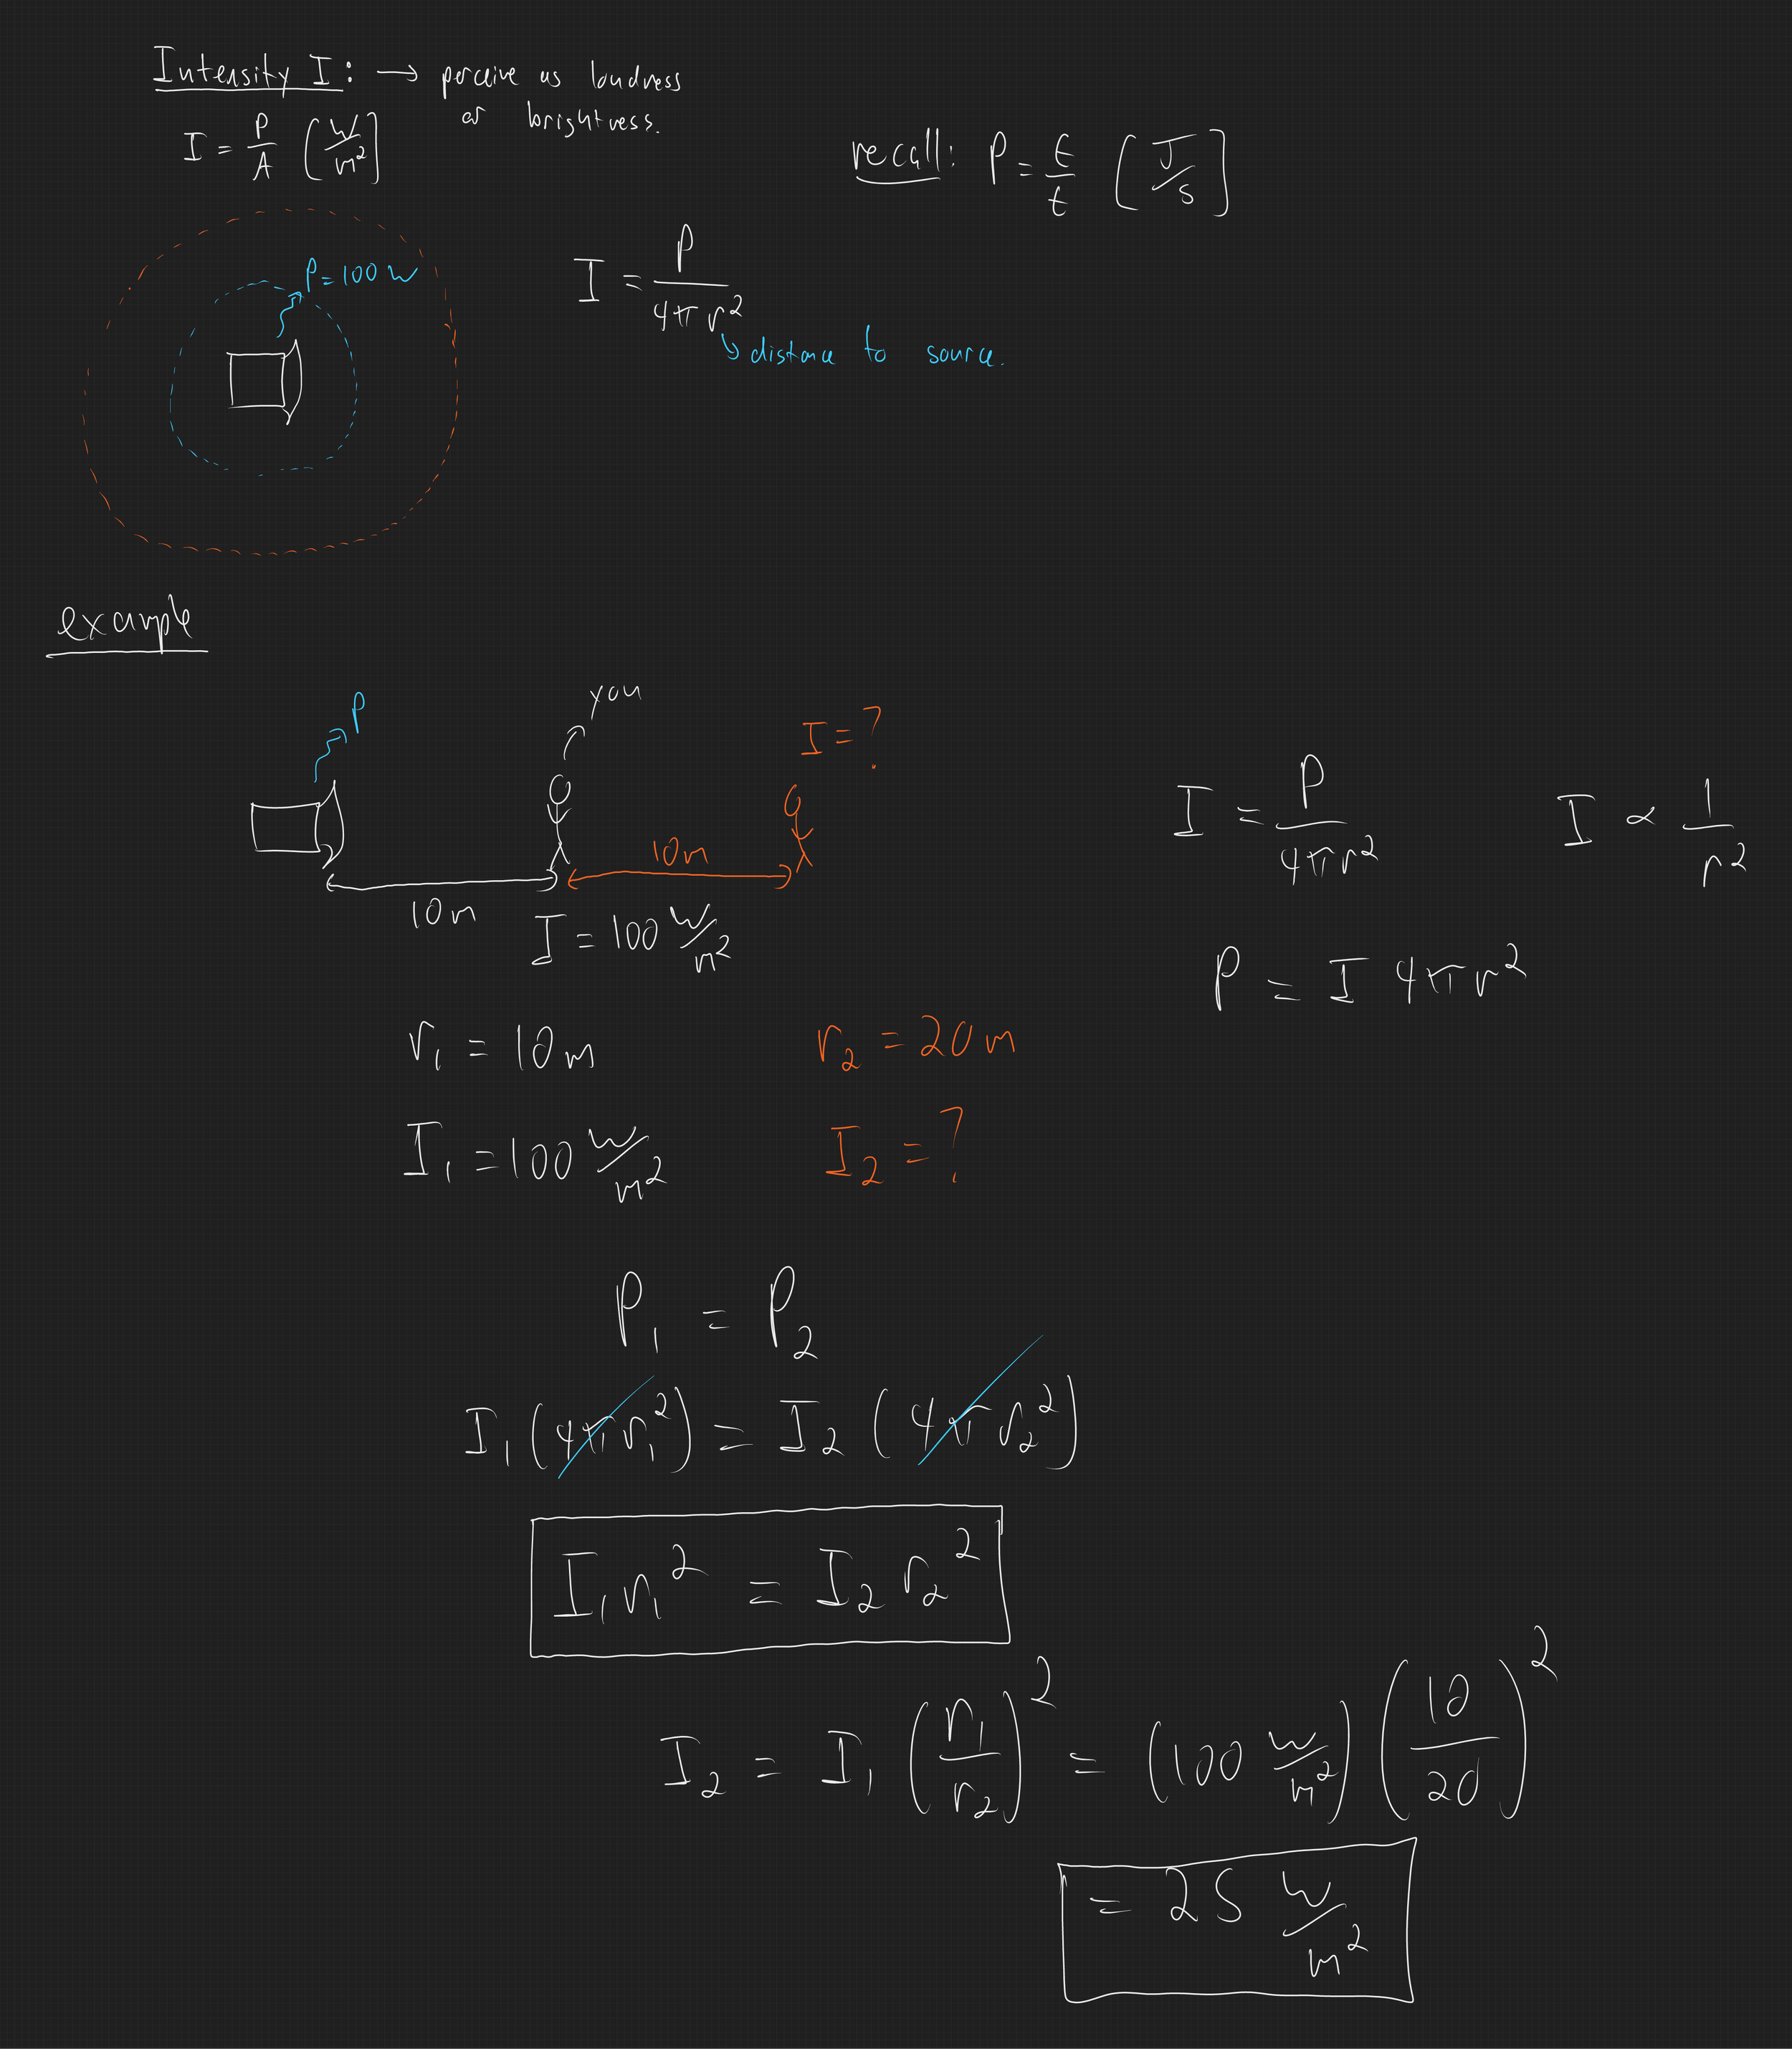 Intensity I: → perceive as loudness
or brightness.
I = P/A [W/m²]
recall: P = E/t [J/s]
P = 100 W
I = P/(4πr²)
↳ distance to source.
example
P
you
I = ?
10m
10m
I = 100 W/m²
I = P/(4πr²)
I ∝ 1/r²
P = I 4πr²
r₁ = 10m
r₂ = 20m
I₁ = 100 W/m²
I₂ = ?
P₁ = P₂
I₁(4πr₁²) = I₂(4πr₂²)
I₁r₁² = I₂r₂²
I₂ = I₁(r₁/r₂)² = (100 W/m²)(10/20)²
= 25 W/m²